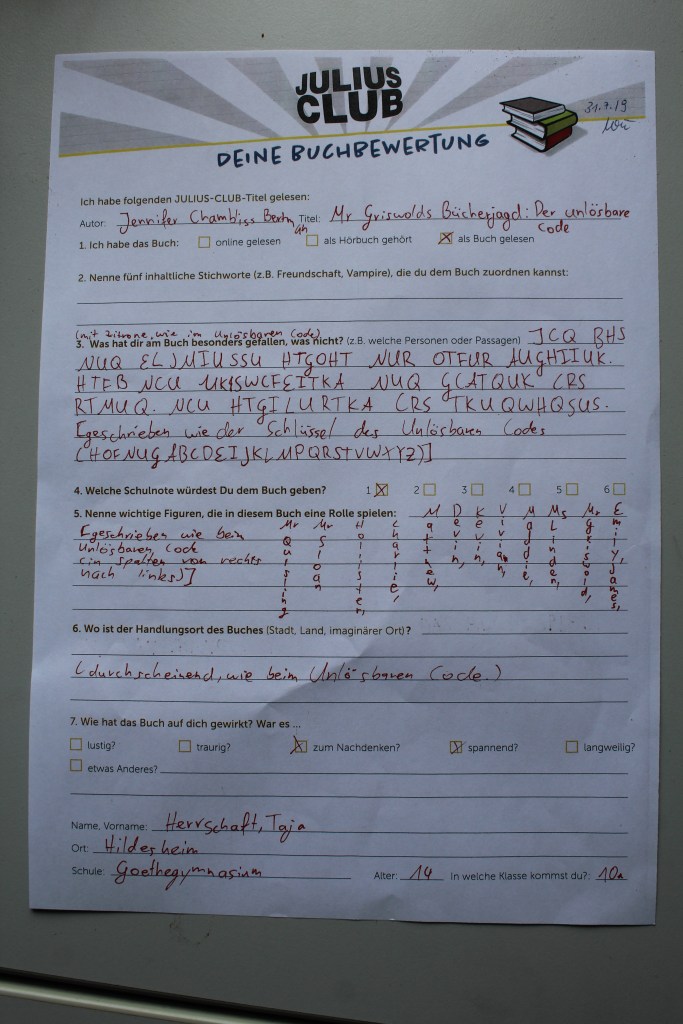 JULIUS
CLUB
31.7.19
DEINE BUCHBEWERTUNG
Ich habe folgenden JULIUS-CLUB-Titel gelesen:
Autor: Jennifer Chambliss Bertman Titel: Mr Griswolds Bücherjagd: Der unlösbare
Code
1. Ich habe das Buch: online gelesen als Hörbuch gehört als Buch gelesen
2. Nenne fünf inhaltliche Stichworte (z.B. Freundschaft, Vampire), die du dem Buch zuordnen kannst:
(mit Zitrone, wie im Unlösbaren Code)
3. Was hat dir am Buch besonders gefallen, was nicht? (z.B. welche Personen oder Passagen) JCQ BHS
NUQ ELJMIUSSU HTGOHT NUR OTFUR AUGHIIUK.
HTFB NCU UKISWCFEITKA NUQ GCATQUK CRS
RTMUQ. NCU HTGILURTKA CRS TKUQWHQSUS.
[geschrieben wie der Schlüssel des Unlösbaren Codes
(HOFNUGABCDEIJKLMPQRSTVWXYZ)]
4. Welche Schulnote würdest Du dem Buch geben? 1 2 3 4 5 6
5. Nenne wichtige Figuren, die in diesem Buch eine Rolle spielen:
[geschrieben wie beim
Unlösbaren Code
(in Spalten von rechts
nach links)]
Mr Quisling
Mr Sloan
Hollister,
Charlie,
Matthew,
Devin,
Kevin,
Vivian,
Maddie,
Ms Linden,
Mr Griswold,
Emily, James,
6. Wo ist der Handlungsort des Buches (Stadt, Land, imaginärer Ort) ?
(durchscheinend, wie beim Unlösbaren Code.)
7. Wie hat das Buch auf dich gewirkt? War es ...
lustig? traurig? zum Nachdenken? spannend? langweilig?
etwas Anderes?
Name, Vorname: Herrschaft, Taja
Ort: Hildesheim
Schule: Goethegymnasium Alter: 14 In welche Klasse kommst du?: 10a